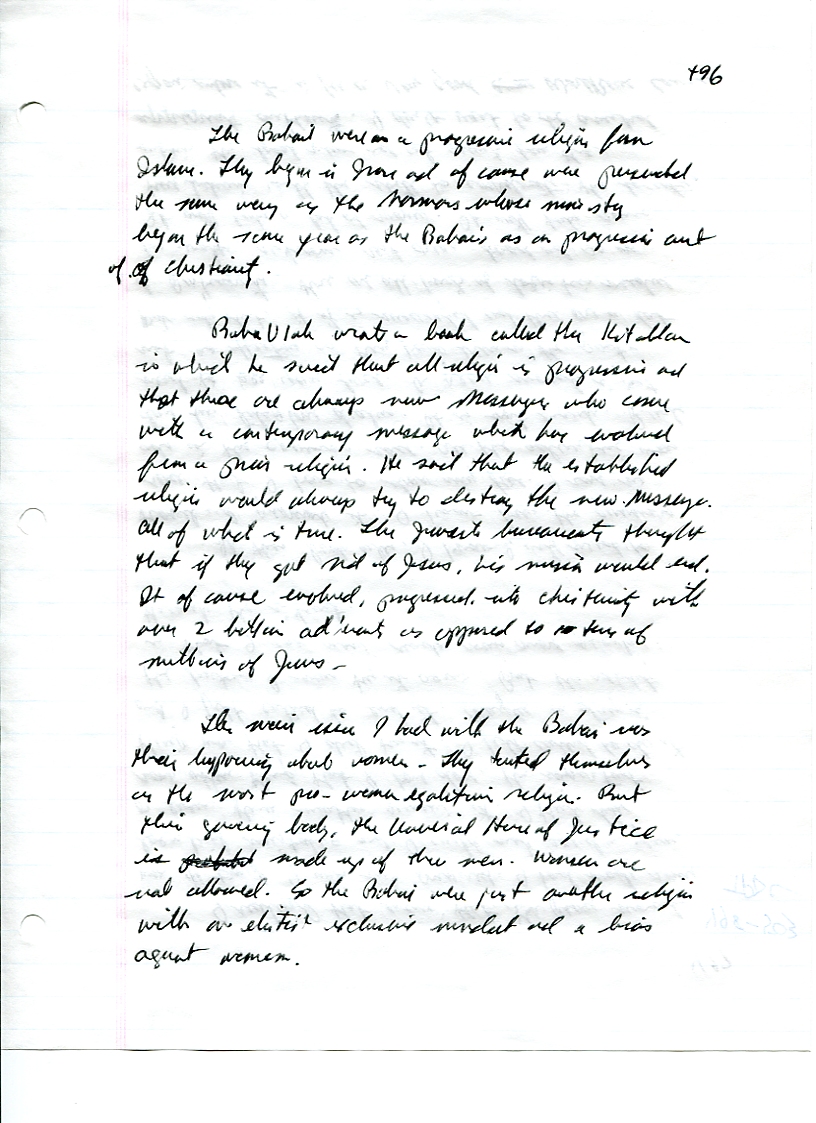 496
The Bahai were on a progressive religion from
Islam. They began in Iran and of course were persecuted
the same way as the Mormons whose ministry
began the same year as the Bahais as a progression out
of of Christianity.
Baha Ulah wrote a book called the Kitab
in which he said that all religion is progressive and
that there are always new Messengers who come
with a contemporary message which has evolved
from a prior religion. He said that the established
religion would always try to destroy the new Message.
All of what is true. The bureaucrats thought
that if they got rid of Jesus, his mission would end.
It of course evolved, progressed into Christianity with
over 2 billion adherents as opposed to tens of
millions of Jews -
The main issue I had with the Bahai was
their hypocrisy about women - They touted themselves
as the most pro-women egalitarian religion. But
their governing body, the Universal House of Justice
is made up of men. Women are
not allowed. So the Bahai were just another religion
with an elitist exclusive mindset and a bias
against women.